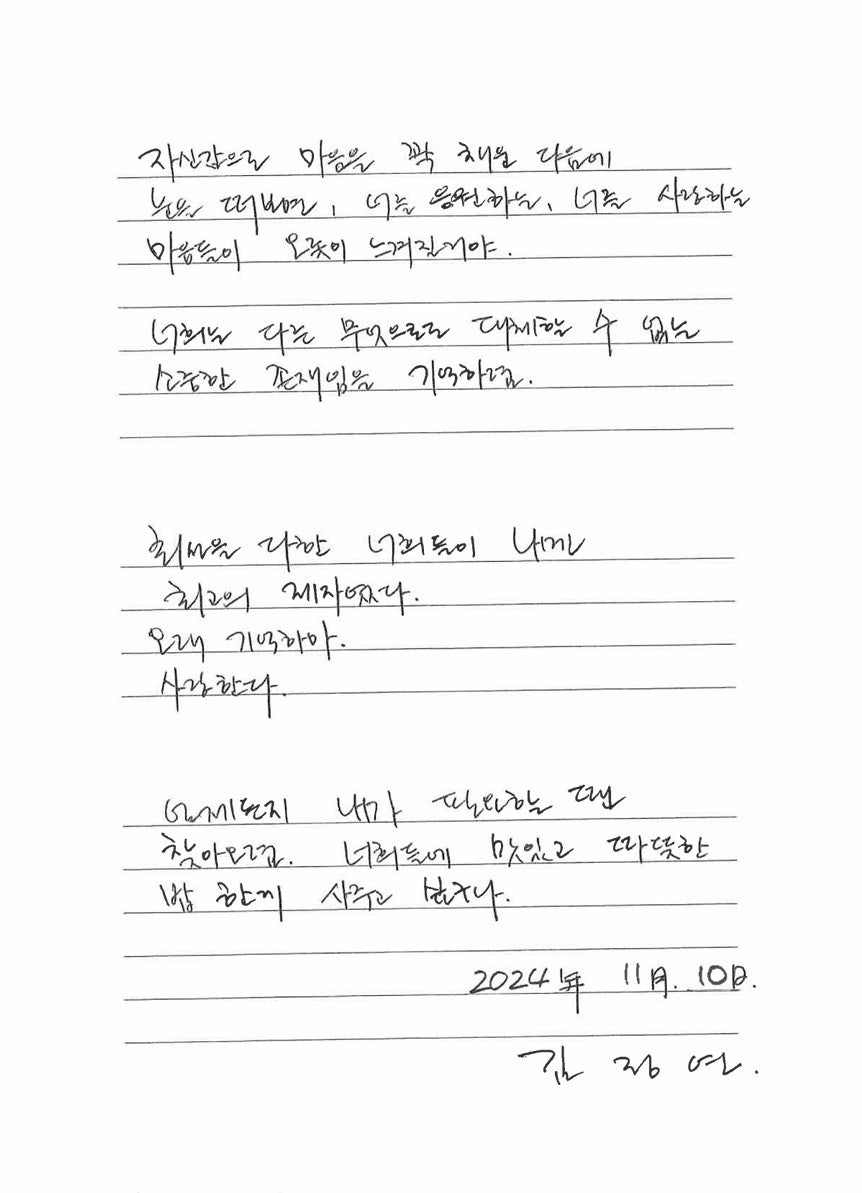 자신감으로 마음을 꽉 채운 다음에
눈을 떠보면, 너를 응원하는, 너를 사랑하는
마음들이 오롯이 느껴질거야.
너희는 다른 무엇으로도 대체할 수 없는
소중한 존재임을 기억하렴.
최선을 다한 너희들이 나에겐
최고의 제자였다.
오래 기억하마.
사랑한다.
언제든지 내가 필요하는 땐
찾아오렴. 너희들에 맛있고 따뜻한
밥 한끼 사주고 싶구나.
2024年 11月. 10日.
김 정 연.